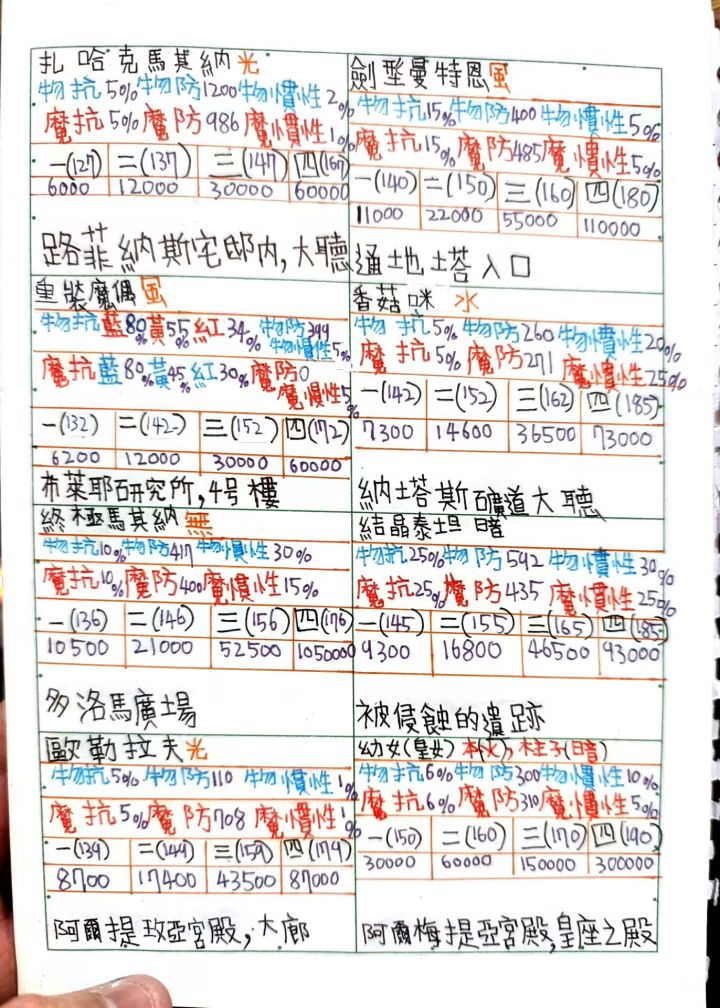 扎哈克馬其納光
物抗5%物防1200物慣性2%
魔抗5%魔防986魔慣性1%
一(127) 二(137) 三(147) 四(167)
6000 12000 30000 60000
路菲納斯宅邸內,大聽
重裝魔偶風
物抗藍80%黃55%紅34%物防399
物慣性5%
魔抗藍80%黃45%紅30%魔防0
魔慣性5%
一(132) 二(142) 三(152) 四(172)
6200 12000 30000 60000
布萊耶研究所,4号樓
終極馬其納無
物抗10%物防417物慣性30%
魔抗10%魔防400魔慣性15%
一(136) 二(146) 三(156) 四(176)
10500 21000 52500 1050000
多洛馬廣場
歐勒拉夫光
物抗5%物防110物慣性1%
魔抗5%魔防708魔慣性1%
一(139) 二(149) 三(159) 四(179)
8700 17400 43500 87000
阿爾提玫亞宮殿,大廊
劍型曼特恩風
物抗15%物防400物慣性5%
魔抗15%魔防485魔慣性5%
一(140) 二(150) 三(160) 四(180)
11000 22000 55000 110000
通地塔入口
香菇咪水
物抗5%物防260物慣性20%
魔抗5%魔防271魔慣性25%
一(142) 二(152) 三(162) 四(185)
7300 14600 36500 73000
納塔斯礦道大聽
結晶泰坦暗
物抗25%物防592物慣性30%
魔抗25%魔防435魔慣性25%
一(145) 二(155) 三(165) 四(185)
9300 16800 46500 93000
被侵蝕的遺跡
幼女(皇女) ,柱子(暗)
物抗6%物防300物慣性10%
魔抗6%魔防310魔慣性5%
一(150) 二(160) 三(170) 四(190)
30000 60000 150000 300000
阿爾梅提亞宮殿,皇座之殿